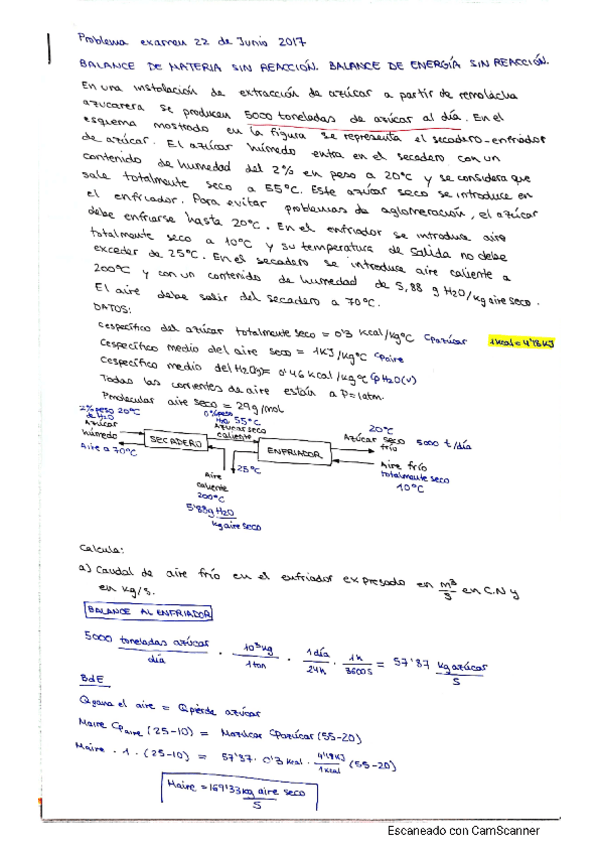 Problema examen 22 de Junio 2017
BALANCE DE MATERIA SIN REACCIÓN. BALANCE DE ENERGÍA SIN REACCIÓN.
En una instalación de extracción de azúcar a partir de remolacha
azucarera se producen 5000 toneladas de azúcar al día. En el
esquema mostrado en la figura se representa el secadero-enfriador
de azúcar. El azúcar húmedo entra en el secadero con un
contenido de humedad del 2% en peso a 20°C y se considera que
sale totalmente seco a 55°C. Este azúcar seco se introduce en
el enfriador. Para evitar problemas de aglomeración, el azúcar
debe enfriarse hasta 20°C. En el enfriador se introduce aire
totalmente seco a 10°C y su temperatura de salida no debe
exceder de 25°C. En el secadero se introduce aire caliente a
200°C y con un contenido de humedad de 5,88 g H2O/kg aire seco.
El aire debe salir del secadero a 70°C.
DATOS:
Cespecífico del azúcar totalmente seco = 0'3 kcal/kg°C Cpazúcar 1kcal = 4'18 KJ
Cespecífico medio del aire seco = 1KJ/kg°C Cpaire
Cespecífico medio del H2O(v) = 0'46 kcal/kg°C CpH2O(v)
Todas las corrientes de aire están a P=1atm.
Pmolecular aire seco = 29g/mol
2% peso 20°C
de H2O
Azúcar
húmedo
Aire a 70°C
SECADERO
0% peso
H2O 55°C
Azúcar seco
caliente
ENFRIADOR
20°C
Azúcar seco 5000 t/día
frío
25°C
Aire frío
totalmente seco
10°C
Aire
caliente
200°C
5'88g H2O
kg aire seco
Calcula:
a) Caudal de aire frío en el enfriador expresado en m³/s en C.N y
en kg/s.
BALANCE AL ENFRIADOR
5000 toneladas azúcar/día · 10³kg/1ton · 1día/24h · 1h/3600s = 57'87 kg azúcar/s
BdE
Qgana el aire = Qpierde azúcar
Maire Cpaire (25-10) = Mazúcar Cpazúcar (55-20)
Maire · 1 · (25-10) = 57'87 · 0'3 kcal · 4'18KJ/1kcal (55-20)
Maire = 169'33 kg aire seco/s
Escaneado con CamScanner